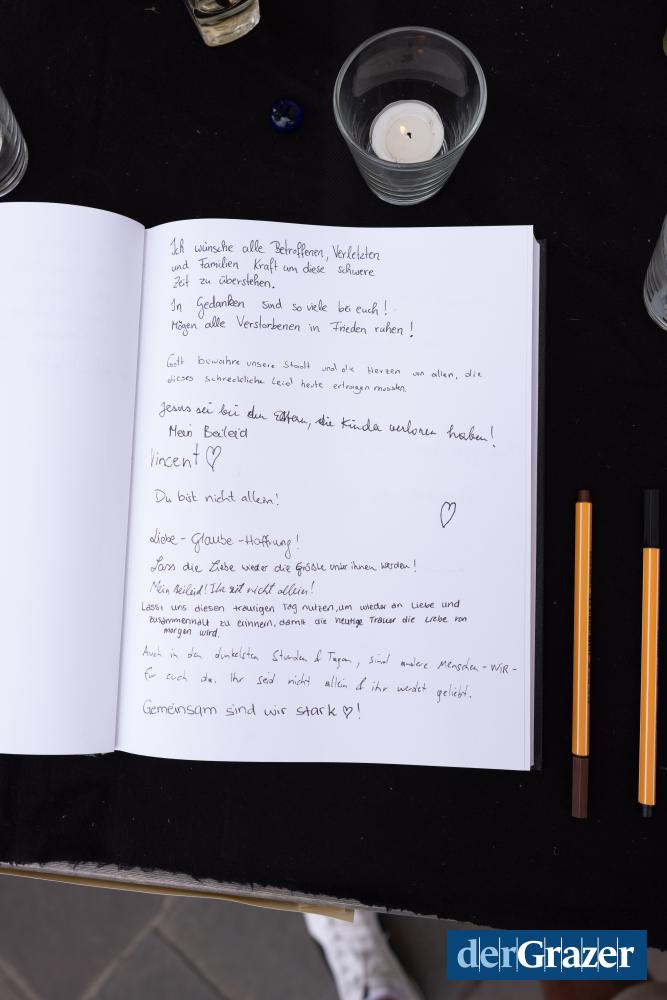 Ich wünsche alle Betroffenen, Verletzten
und Familien Kraft um diese schwere
Zeit zu überstehen.
In Gedanken sind so viele bei euch!
Mögen alle Verstorbenen in Frieden ruhen!
Gott bewahre unsere Stadt und die Herzen von allen, die
dieses schreckliche Leid heute ertragen mussten.
Jesus sei bei den Eltern, die Kinder verloren haben!
Mein Beileid
Vincent ♡
Du bist nicht allein!
♡
Liebe - Glaube - Hoffnung!
Lass die Liebe wieder die Größte unter ihnen werden!
Mein Beileid! Ihr seit nicht allein!
Lasst uns diesen traurigen Tag nutzen, um wieder an Liebe und
zusammenhalt zu erinnern, damit die heutige Trauer die Liebe von
morgen wird.
Auch in den dunkelsten Stunden & Tagen, sind andere Menschen - WIR -
für euch da. Ihr seid nicht allein & ihr werdet geliebt.
Gemeinsam sind wir stark ♡!
derGrazer